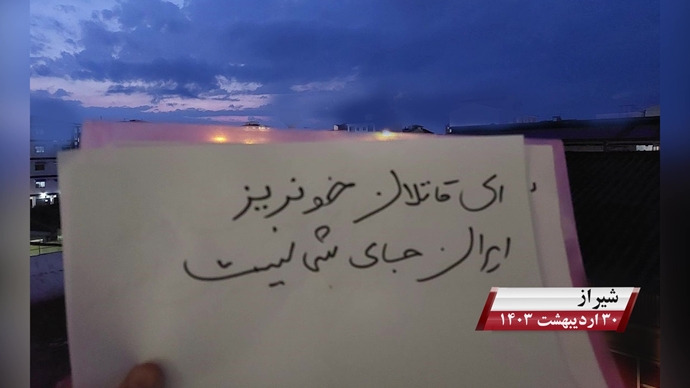 ای قاتلان خونریز
ایران جای شما نیست
شیراز
۳۰ اردیبهشت ۱۴۰۳